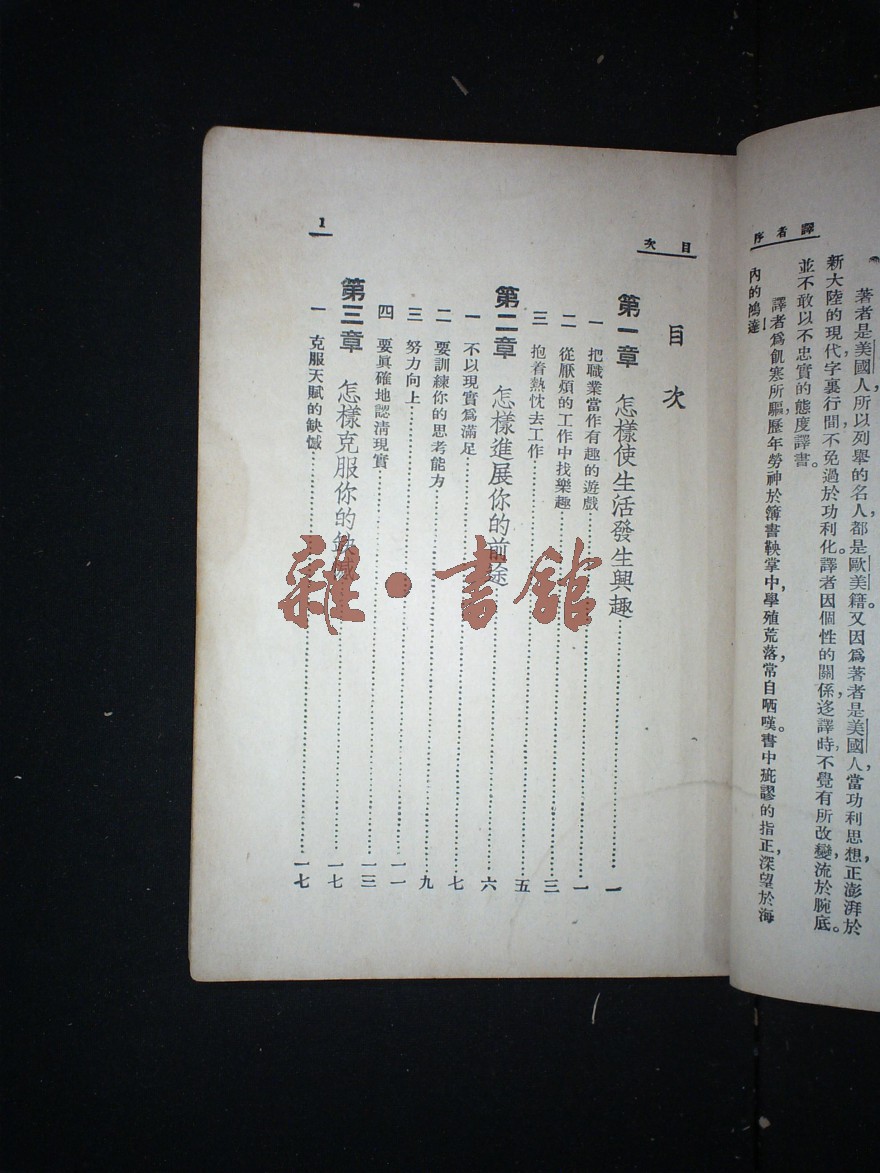 譯者序
著者是美國人,所以列舉的名人,都是歐美籍。又因爲著者是美國人,當功利思想正澎湃於
新大陸的現代,字裏行間,不免過於功利化。譯者因個性的關係,迻譯時,不覺有所改變,流於腕底。
並不敢以不忠實的態度譯書。
譯者爲飢寒所驅,歷年勞神於簿書鞅掌中,學殖荒落,常自哂嘆。書中疵謬的指正,深望於海
內的鴻達
目次
目次
第一章 怎樣使生活發生興趣……一
一 把職業當作有趣的遊戲……一
二 從厭煩的工作中找樂趣……三
三 抱着熱忱去工作……五
第二章 怎樣進展你的前途……六
一 不以現實爲滿足……七
二 要訓練你的思考能力……九
三 努力向上……一一
四 要眞確地認淸現實……一三
第三章 怎樣克服你的缺憾……一七
一 克服天賦的缺憾……一七
1
雜·書館